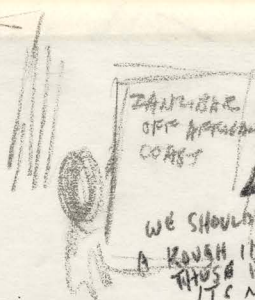 ZANZIBAR
OFF AFRICAN
COAST
WE SHOULD
A ROUGH
THUS
ITS